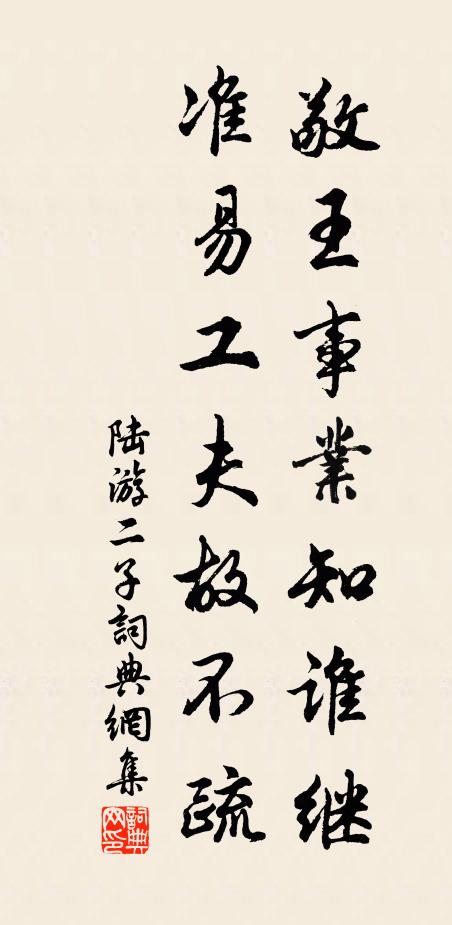 敬王事業知誰継
准易工夫故不疏
陆游二子詞典網集
詞典网印